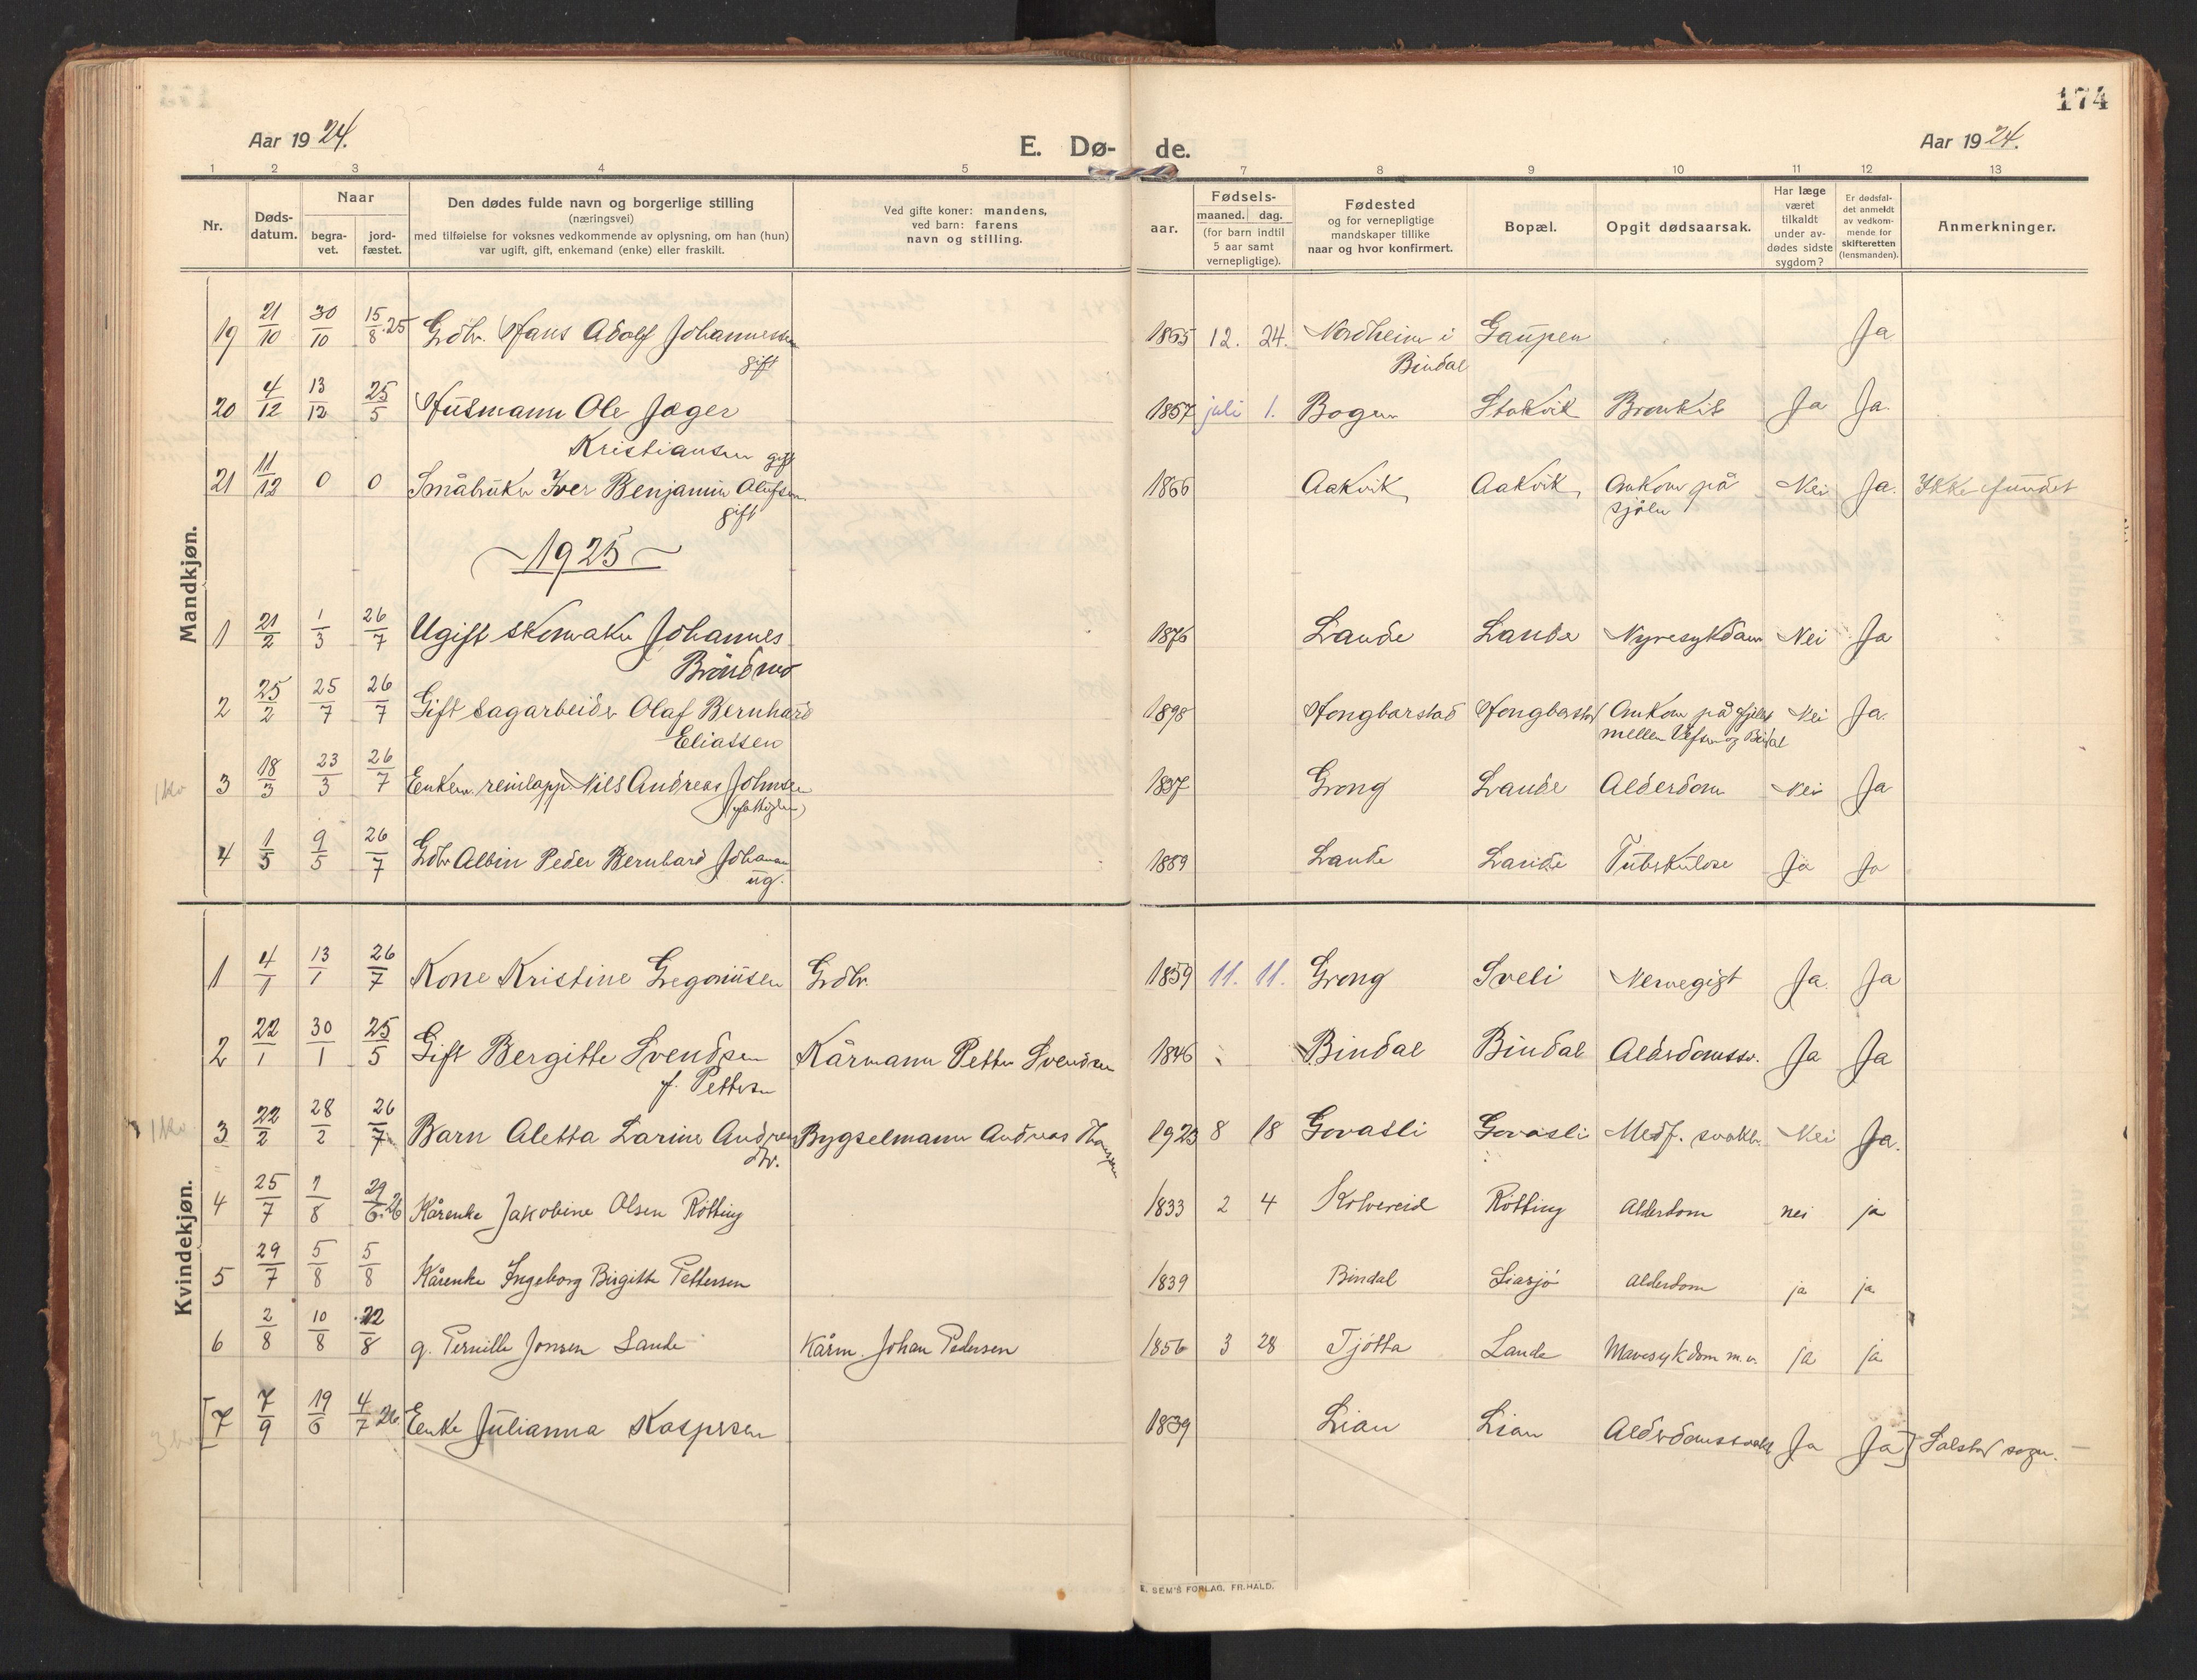 174
Aar 1924.
E. Dø- de.
Aar 1924.
1 2 3 4 5 7 8 9 10 11 12 13
Nr.
Døds-
datum.
Naar
begra-
vet.
jord-
fæstet.
Den dødes fulde navn og borgerlige stilling
(næringsvei)
med tilføielse for voksnes vedkommende av oplysning, om han (hun)
var ugift, gift, enkemand (enke) eller fraskilt.
Ved gifte koner: mandens,
ved barn: farens
navn og stilling.
aar.
Fødsels-
maaned. dag.
(for barn indtil
5 aar samt
vernepligtige).
Fødested
og for vernepligtige
mandskaper tillike
naar og hvor konfirmert.
Bopæl.
Opgit dødsaarsak.
Har læge
været
tilkaldt
under av-
dødes sidste
sygdom?
Er dødsfal-
det anmeldt
av vedkom-
mende for
skifteretten
(lensmanden).
Anmerkninger.
Mandkjøn.
19 21/10 30/10 15/8.25 Gdbr. Hans Adolf Johannessen 1855 12. 24. Nordheim i Gaupen Ja
gift Bindal
20 4/12 13/12 25/5 Husmann Ole Jæger 1857 juli 1. Bogen Stokvik Bronkit Ja Ja.
Kristiansen gift
21 11/12 0 0 Småbruker Iver Benjamin Olufsen 1866 Aakvik Aakvik Omkom på Nei Ja. Ikke fundet
gift sjöen
1925
1 21/2 1/3 26/7 Ugift skomaker Johannes 1876 Lande Lande Nyresykdom Nei Ja
Bröndmo
2 25/2 25/7 26/7 Gift sagarbeider Olaf Bernhard 1898 Hongbarstad Hongbarstad Omkom på fjellet Nei Ja.
Eliassen mellem Vefsn og Bindal
1 ko 3 18/3 23/3 26/7 Enkem. reinlapp Nils Andreas Johnsen 1837 Grong Lande Alderdom Nei Ja
(fattiglem)
4 1/5 9/5 26/7 Gdbr Albin Peder Bernhard Johansen 1889 Lande Lande Tuberkulose Ja Ja
ug.
Kvindekjøn.
1 4/1 13/1 26/7 Kone Kristine Gregoriusen Gdbr. 1859 11. 11. Grong Sveli Nervegigt Ja. Ja
2 22/1 30/1 25/5 Gift Bergitte Svendsen Kårmann Petter Svendsen 1846 Bindal Bindal Alderdomssv. Ja Ja
f. Pettersen
1 ko 3 22/2 28/2 26/7 Barn Aletta Larine Andreas Bygselmann Andreas Thomassen 1923 8 18 Govasli Govasli Medf. svakh. Nei Ja.
dtr.
4 25/7 7/8 29/6.26 Kårenke Jakobine Olsen Rötting 1833 2 4 Kolvereid Rötting Alderdom nei ja
5 29/7 5/8 5/8 Kårenke Ingeborg Birgitte Pettersen 1839 Bindal Liasjö Alderdom ja ja
6 2/8 10/8 22/8 g. Pernille Jonsen Lande Kårm. Johan Pedersen 1856 3 28 Tjötta Lande Mavesykdom m.v. ja ja
[7 7/9 19/6 4/7 26. Enke Julianna Kaspersen 1839 Lian Lian Alderdomssvakh Ja Ja] Salstad sogn.
E. SEM'S FORLAG, FR.HALD.